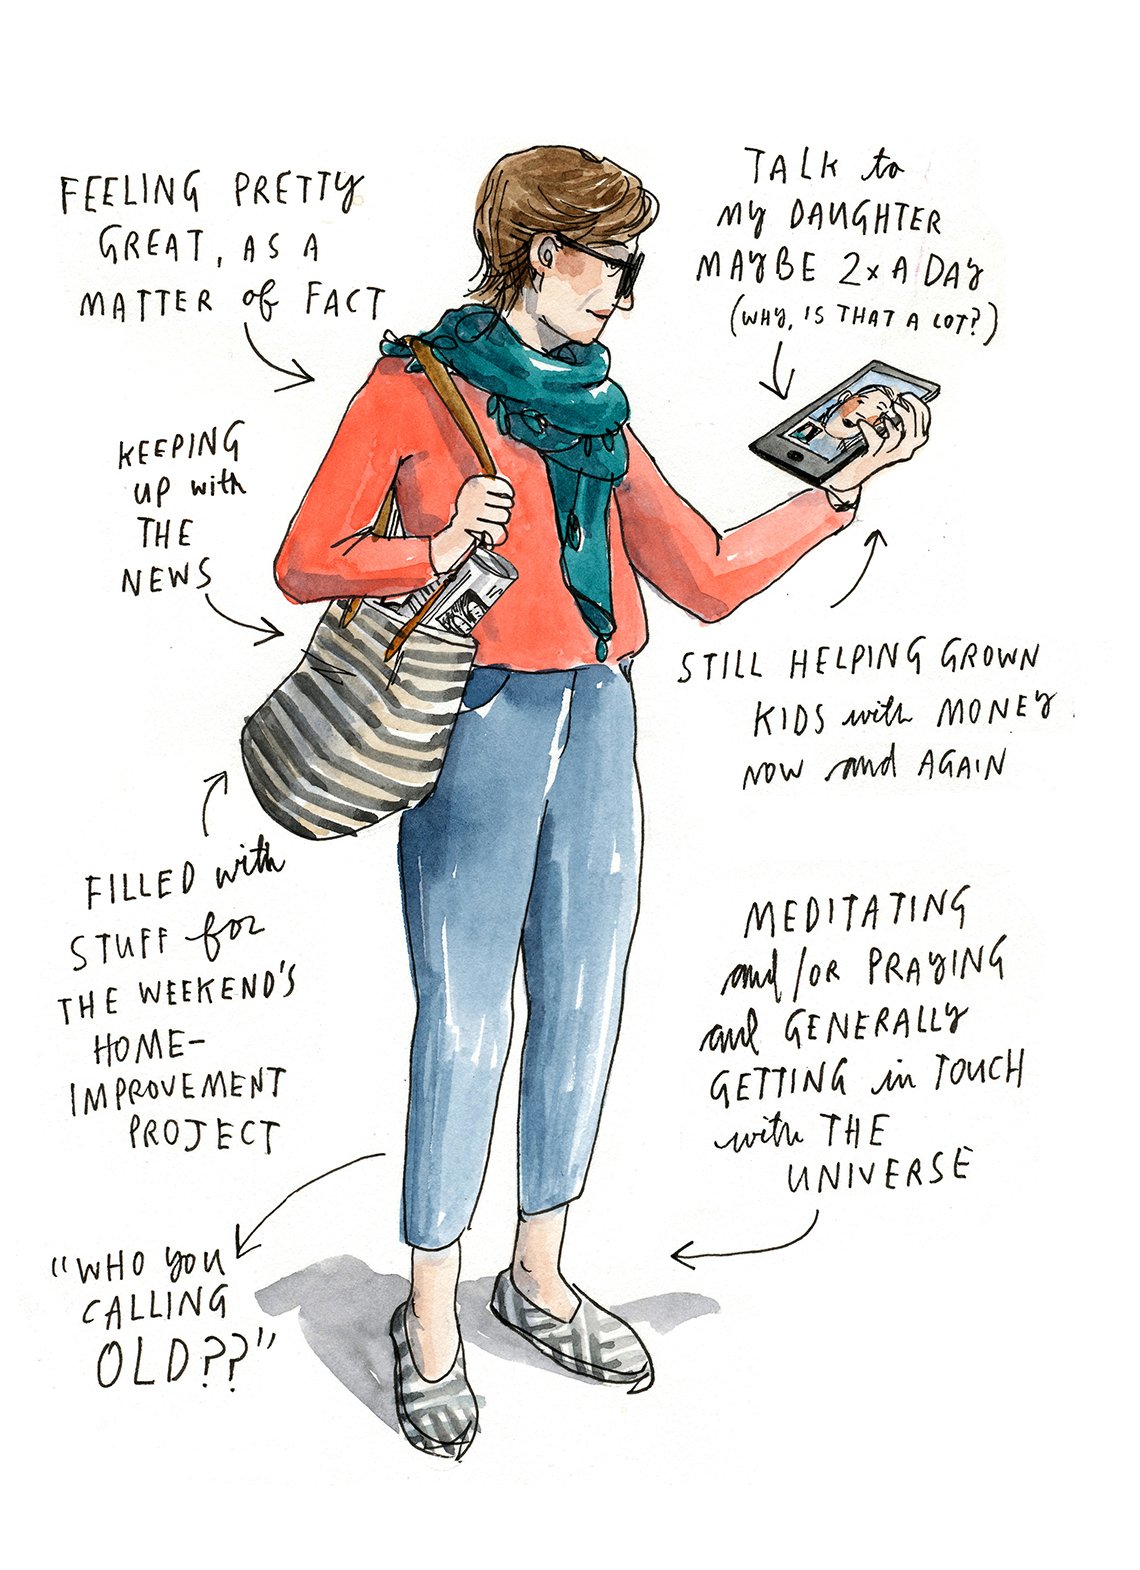 FEELING PRETTY
GREAT, AS A
MATTER of FACT
TALK to
MY DAUGHTER
MAYBE 2x A DAY
(WHY, IS THAT A LOT?)
KEEPING
UP with
THE
NEWS
STILL HELPING GROWN
KIDS with MONEY
NOW and AGAIN
FILLED with
STUFF for
THE WEEKEND'S
HOME-
IMPROVEMENT
PROJECT
MEDITATING
and/OR PRAYING
and GENERALLY
GETTING in TOUCH
with THE
UNIVERSE
"WHO YOU
CALLING
OLD??"